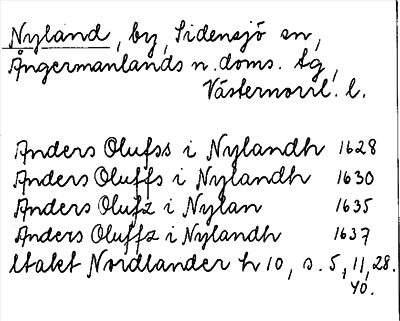 Nyland, by, Sidensjö sn,
Ångermanlands n. doms. tg,
Västernorrl. l.
Anders Olufss i Nylandh 1628
Anders Oluffs i Nylandh 1630
Anders Olufz i Nylan 1635
Anders Oluffz i Nylandh 1637
Utakt Nordlander h 10, s. 5, 11, 28.
40.